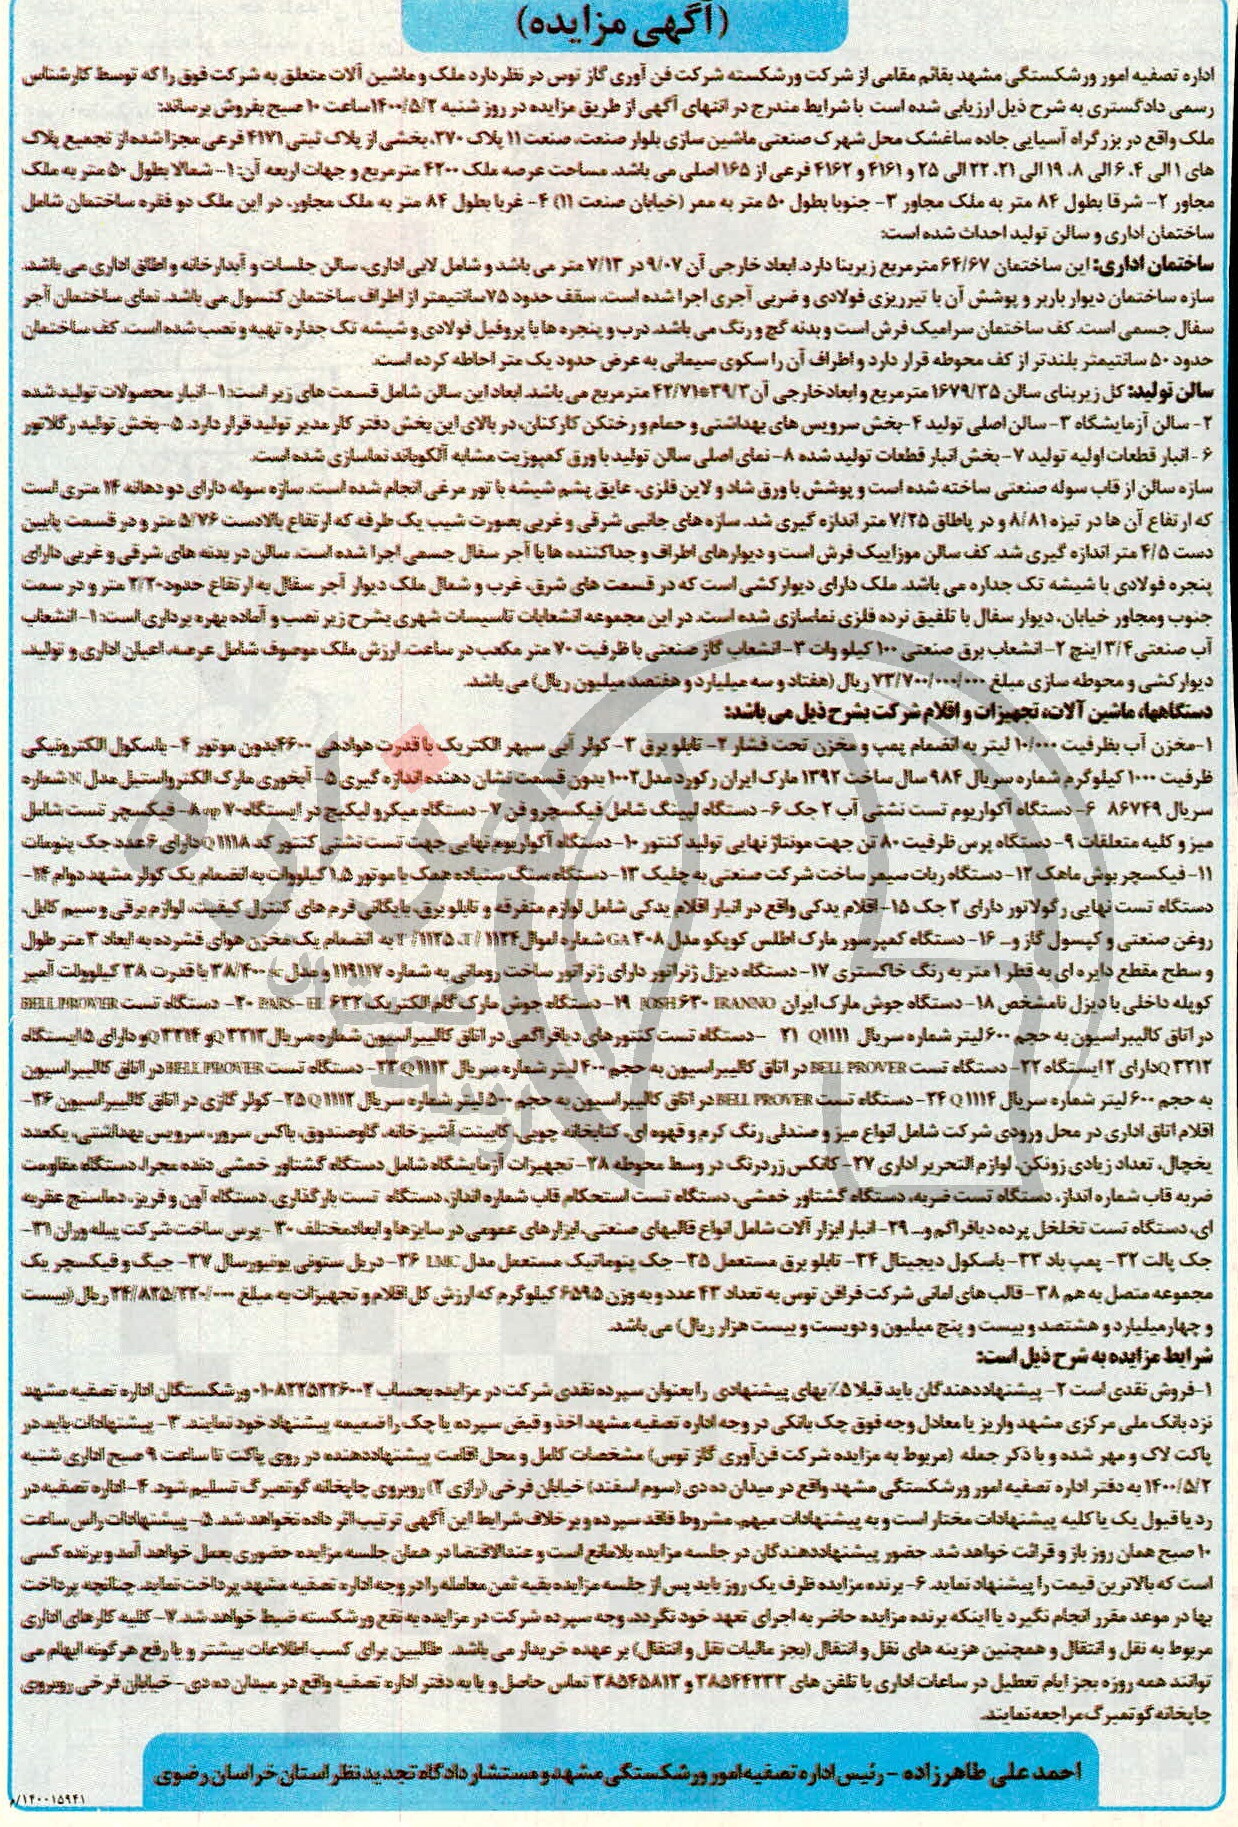 (آگهی مزایده)
اداره تصفیه امور ورشکستگی مشهد بقائم مقامی از شرکت ورشکسته شرکت فن آوری گاز توس در نظر دارد ملک و ماشین آلات متعلق به شرکت فوق را که توسط کارشناس
رسمی دادگستری به شرح ذیل ارزیابی شده است با شرایط مندرج در انتهای آگهی از طریق مزایده در روز شنبه ۱۴۰۰/۵/۲ ساعت ۱۰ صبح بفروش برساند:
ملک واقع در بزرگراه آسیایی جاده ساغشک محل شهرک صنعتی ماشین سازی بلوار صنعت، صنعت ۱۱ پلاک ۲۷۰، بخشی از پلاک ثبتی ۴۱۷۱ فرعی مجزا شده از تجمیع پلاک
های ۱ الی ۴، ۶ الی ۸، ۱۹ الی ۲۱، ۲۲ الی ۲۵ و ۴۱۶۱ و ۴۱۶۲ فرعی از ۱۶۵ اصلی می باشد. مساحت عرصه ملک ۴۲۰۰ متر مربع و جهات اربعه آن: ۱- شمالا بطول ۵۰ متر به ملک
مجاور ۲- شرقا بطول ۸۴ متر به ملک مجاور ۳- جنوبا بطول ۵۰ متر به ممر (خیابان صنعت ۱۱) ۴- غربا بطول ۸۴ متر به ملک مجاور، در این ملک دو فقره ساختمان شامل
ساختمان اداری و سالن تولید احداث شده است:
ساختمان اداری: این ساختمان ۶۴/۶۷ متر مربع زیربنا دارد. ابعاد خارجی آن ۹/۰۷ در ۷/۱۳ متر می باشد و شامل لابی اداری، سالن جلسات و آبدارخانه و اطاق اداری می باشد.
سازه ساختمان دیوار باربر و پوشش آن با تیرریزی فولادی و ضربی آجری اجرا شده است. سقف حدود ۷۵ سانتیمتر از اطراف ساختمان کنسول می باشد. نمای ساختمان آجر
سفال جسمی است. کف ساختمان سرامیک فرش است و بدنه گچ و رنگ می باشد. درب و پنجره ها با پروفیل فولادی و شیشه تک جداره تهیه و نصب شده است. کف ساختمان
حدود ۵۰ سانتیمتر بلندتر از کف محوطه قرار دارد و اطراف آن را سکوی سیمانی به عرض حدود یک متر احاطه کرده است.
سالن تولید: کل زیربنای سالن ۱۶۷۹/۳۵ متر مربع و ابعاد خارجی آن ۳۹/۳*۴۲/۷۱ متر مربع می باشد. ابعاد این سالن شامل قسمت های زیر است: ۱- انبار محصولات تولید شده
۲- سالن آزمایشگاه ۳- سالن اصلی تولید ۴- بخش سرویس های بهداشتی و حمام و رختکن کارکنان، در بالای این بخش دفتر کار مدیر تولید قرار دارد. ۵- بخش تولید رگلاتور
۶- انبار قطعات اولیه تولید ۷- بخش انبار قطعات تولید شده ۸- نمای اصلی سالن تولید با ورق کمپوزیت مشابه آلکوباند نماسازی شده است.
سازه سالن از قاب سوله صنعتی ساخته شده است و پوشش با ورق شاد و لاین فلزی، عایق پشم شیشه با تور مرغی انجام شده است. سازه سوله دارای دو دهانه ۱۴ متری است
که ارتفاع آن ها در تیزه ۸/۸۱ و در پاطاق ۷/۲۵ متر اندازه گیری شد. سازه های جانبی شرقی و غربی بصورت شیب یک طرفه که ارتفاع بالادست ۵/۷۶ متر و در قسمت پایین
دست ۴/۵ متر اندازه گیری شد. کف سالن موزاییک فرش است و دیوارهای اطراف و جداکننده ها با آجر سفال جسمی اجرا شده است. سالن در بدنه های شرقی و غربی دارای
پنجره فولادی با شیشه تک جداره می باشد. ملک دارای دیوارکشی است که در قسمت های شرق، غرب و شمال ملک دیوار آجر سفال به ارتفاع حدود ۲/۲۰ متر و در سمت
جنوب و مجاور خیابان، دیوار سفال با تلفیق نرده فلزی نماسازی شده است. در این مجموعه انشعابات تاسیسات شهری بشرح زیر نصب و آماده بهره برداری است: ۱- انشعاب
آب صنعتی ۳/۴ اینچ ۲- انشعاب برق صنعتی ۱۰۰ کیلو وات ۳- انشعاب گاز صنعتی با ظرفیت ۷۰ متر مکعب در ساعت. ارزش ملک موصوف شامل عرصه، اعیان اداری و تولید،
دیوارکشی و محوطه سازی مبلغ ۷۳/۷۰۰/۰۰۰/۰۰۰ ریال (هفتاد و سه میلیارد و هفتصد میلیون ریال) می باشد.
دستگاهها، ماشین آلات، تجهیزات و اقلام شرکت بشرح ذیل می باشد:
۱- مخزن آب بظرفیت ۱۰/۰۰۰ لیتر به انضمام پمپ و مخزن تحت فشار ۲- تابلو برق ۳- کولر آبی سپهر الکتریک با قدرت هوادهی ۴۶۰۰ بدون موتور ۴- باسکول الکترونیکی
ظرفیت ۱۰۰۰ کیلوگرم شماره سریال ۹۸۴ سال ساخت ۱۳۹۲ مارک ایران رکورد مدل ۱۰۰۲ بدون قسمت نشان دهنده اندازه گیری ۵- آبخوری مارک الکترواستیل مدل N شماره
سریال ۸۶۷۴۹ ۶- دستگاه آکواریوم تست نشتی آب ۲ جک ۶- دستگاه لیپینگ شامل فیکسچر و فن ۷- دستگاه میکرو لیکیج در ایستگاه op ۷۰ ۸- فیکسچر تست شامل
میز و کلیه متعلقات ۹- دستگاه پرس ظرفیت ۸۰ تن جهت مونتاژ نهایی تولید کنتور ۱۰- دستگاه آکواریوم نهایی جهت تست نشتی کنتور کد Q ۱۱۱۸ دارای ۶ عدد جک پنومات
۱۱- فیکسچر بوش ماهک ۱۲- دستگاه ربات سیمر ساخت شرکت صنعتی به چفیک ۱۳- دستگاه سنگ سنباده همک با موتور ۱.۵ کیلووات به انضمام یک کولر مشهد دوام ۱۴-
دستگاه تست نهایی رگولاتور دارای ۲ جک ۱۵- اقلام یدکی واقع در انبار اقلام یدکی شامل لوازم متفرقه و تابلو برق، بایگانی فرم های کنترل کیفیت، لوازم برقی و سیم کابل،
روغن صنعتی و کپسول گاز و... ۱۶- دستگاه کمپرسور مارک اطلس کوپکو مدل GA ۳۰۸ شماره اموال ۱۱۲۴ / T ، ۱۱۲۵ / T به انضمام یک مخزن هوای فشرده به ابعاد ۳ متر طول
و سطح مقطع دایره ای به قطر ۱ متر به رنگ خاکستری ۱۷- دستگاه دیزل ژنراتور دارای ژنراتور ساخت رومانی به شماره ۱۱۹۱۱۷ و مدل ۳۸/۴۰۰ با قدرت ۳۸ کیلوولت آمپر
کوپله داخلی با دیزل نامشخص ۱۸- دستگاه جوش مارک ایران JOSH ۶۳۰ IRANNO ۱۹- دستگاه جوش مارک گام الکتریک PARS-EL ۶۳۲ ۲۰- دستگاه تست BELL PROVER
در اتاق کالیبراسیون به حجم ۶۰۰ لیتر شماره سریال Q ۱۱۱۱ ۲۱ - دستگاه تست کنتورهای دیافراگمی در اتاق کالیبراسیون شماره سریال Q ۳۲۱۳ و Q ۳۲۱۴ و دارای ۵ ایستگاه
Q ۳۲۱۲ دارای ۲ ایستگاه ۲۲- دستگاه تست BELL PROVER در اتاق کالیبراسیون به حجم ۴۰۰ لیتر شماره سریال Q ۱۱۱۳ ۲۳- دستگاه تست BELL PROVER در اتاق کالیبراسیون
به حجم ۶۰۰ لیتر شماره سریال Q ۱۱۱۴ ۲۴- دستگاه تست BELL PROVER در اتاق کالیبراسیون به حجم ۵۰۰ لیتر شماره سریال Q ۱۱۱۲ ۲۵- کولر گازی در اتاق کالیبراسیون ۲۶-
اقلام اتاق اداری در محل ورودی شرکت شامل انواع میز و صندلی رنگ کرم و قهوه ای، کتابخانه چوبی، کابینت آشپزخانه، گاوصندوق، باکس سرور، سرویس بهداشتی، یکعدد
یخچال، تعداد زیادی زونکن، لوازم التحریر اداری ۲۷- کانکس زردرنگ در وسط محوطه ۲۸- تجهیزات آزمایشگاه شامل دستگاه گشتاور خمشی دنده مجرا، دستگاه مقاومت
ضربه قاب شماره انداز، دستگاه تست ضربه، دستگاه گشتاور خمشی، دستگاه تست استحکام قاب شماره انداز، دستگاه تست بارگذاری، دستگاه آون و فریز، دماسنج عقربه
ای، دستگاه تست تخلخل پرده دیافراگم و... ۲۹- انبار ابزار آلات شامل انواع قالبهای صنعتی، ابزارهای عمومی در سایزها و ابعاد مختلف ۳۰- پرس ساخت شرکت پیله وران ۳۱-
جک پالت ۳۲- پمپ باد ۳۳- باسکول دیجیتال ۳۴- تابلو برق مستعمل ۳۵- جک پنوماتیک مستعمل مدل LMC ۳۶- دریل ستونی یونیورسال ۳۷- جیگ و فیکسچر یک
مجموعه متصل به هم ۳۸- قالب های امانی شرکت فرافن توس به تعداد ۴۳ عدد و به وزن ۶۵۹۵ کیلوگرم که ارزش کل اقلام و تجهیزات به مبلغ ۲۴/۸۲۵/۲۲۰/۰۰۰ ریال (بیست
و چهار میلیارد و هشتصد و بیست و پنج میلیون و دویست و بیست هزار ریال) می باشد.
شرایط مزایده به شرح ذیل است:
۱- فروش نقدی است ۲- پیشنهاددهندگان باید قبلا ۵٪ بهای پیشنهادی را بعنوان سپرده نقدی شرکت در مزایده بحساب ۰۱۰۸۲۲۵۲۲۶۰۰۲ ورشکستگان اداره تصفیه مشهد
نزد بانک ملی مرکزی مشهد واریز یا معادل وجه فوق چک بانکی در وجه اداره تصفیه مشهد اخذ و قبض سپرده یا چک را ضمیمه پیشنهاد خود نمایند. ۳- پیشنهادات باید در
پاکت لاک و مهر شده و با ذکر جمله (مربوط به مزایده شرکت فن‌آوری گاز توس) مشخصات کامل و محل اقامت پیشنهاددهنده در روی پاکت تا ساعت ۹ صبح اداری شنبه
۱۴۰۰/۵/۲ به دفتر اداره تصفیه امور ورشکستگی مشهد واقع در میدان ده دی (سوم اسفند) خیابان فرخی (رازی ۲) روبروی چاپخانه گوتمبرگ تسلیم شود. ۴- اداره تصفیه در
رد یا قبول یک یا کلیه پیشنهادات مختار است و به پیشنهادات مبهم، مشروط فاقد سپرده و برخلاف شرایط این آگهی ترتیب اثر داده نخواهد شد. ۵- پیشنهادات راس ساعت
۱۰ صبح همان روز باز و قرائت خواهد شد. حضور پیشنهاددهندگان در جلسه مزایده بلامانع است و عندالاقتضا در همان جلسه مزایده حضوری بعمل خواهد آمد و برنده کسی
است که بالاترین قیمت را پیشنهاد نماید. ۶- برنده مزایده ظرف یک روز باید پس از جلسه مزایده بقیه ثمن معامله را در وجه اداره تصفیه مشهد پرداخت نماید. چنانچه پرداخت
بها در موعد مقرر انجام نگیرد یا اینکه برنده مزایده حاضر به اجرای تعهد خود نگردد، وجه سپرده شرکت در مزایده به نفع ورشکسته ضبط خواهد شد. ۷- کلیه کارهای اداری
مربوط به نقل و انتقال و همچنین هزینه های نقل و انتقال (بجز مالیات نقل و انتقال) بر عهده خریدار می باشد. طالبین برای کسب اطلاعات بیشتر و یا رفع هرگونه ابهام می
توانند همه روزه بجز ایام تعطیل در ساعات اداری با تلفن های ۳۸۵۴۴۲۳۳ و ۳۸۵۴۵۸۱۳ تماس حاصل و یا به دفتر اداره تصفیه واقع در میدان ده دی- خیابان فرخی روبروی
چاپخانه گوتمبرگ مراجعه نمایند.
احمد علی طاهرزاده - رئیس اداره تصفیه امور ورشکستگی مشهد و مستشار دادگاه تجدید نظر استان خراسان رضوی
۱۴۰۰۱۵۹۴۱/م